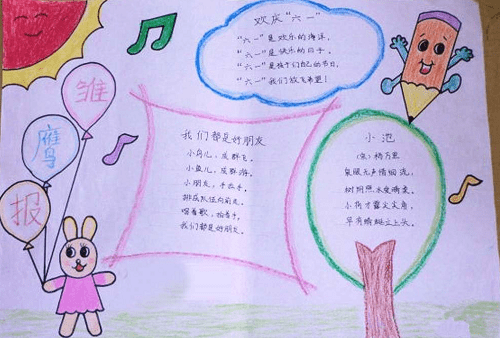 雏
鹰
报
欢庆“六一”
“六一”是欢乐的海洋,
“六一”是快乐的日子,
“六一”是孩子们自己的节日,
“六一”我们放飞希望!
我们都是好朋友
小鸟儿,成群飞,
小鱼儿,成群游,
小朋友,手拉手,
排成队伍向前走,
唱着歌,拍着手,
我们都是好朋友。
小池
(宋)杨万里
泉眼无声惜细流,
树阴照水爱晴柔。
小荷才露尖尖角,
早有蜻蜓立上头。